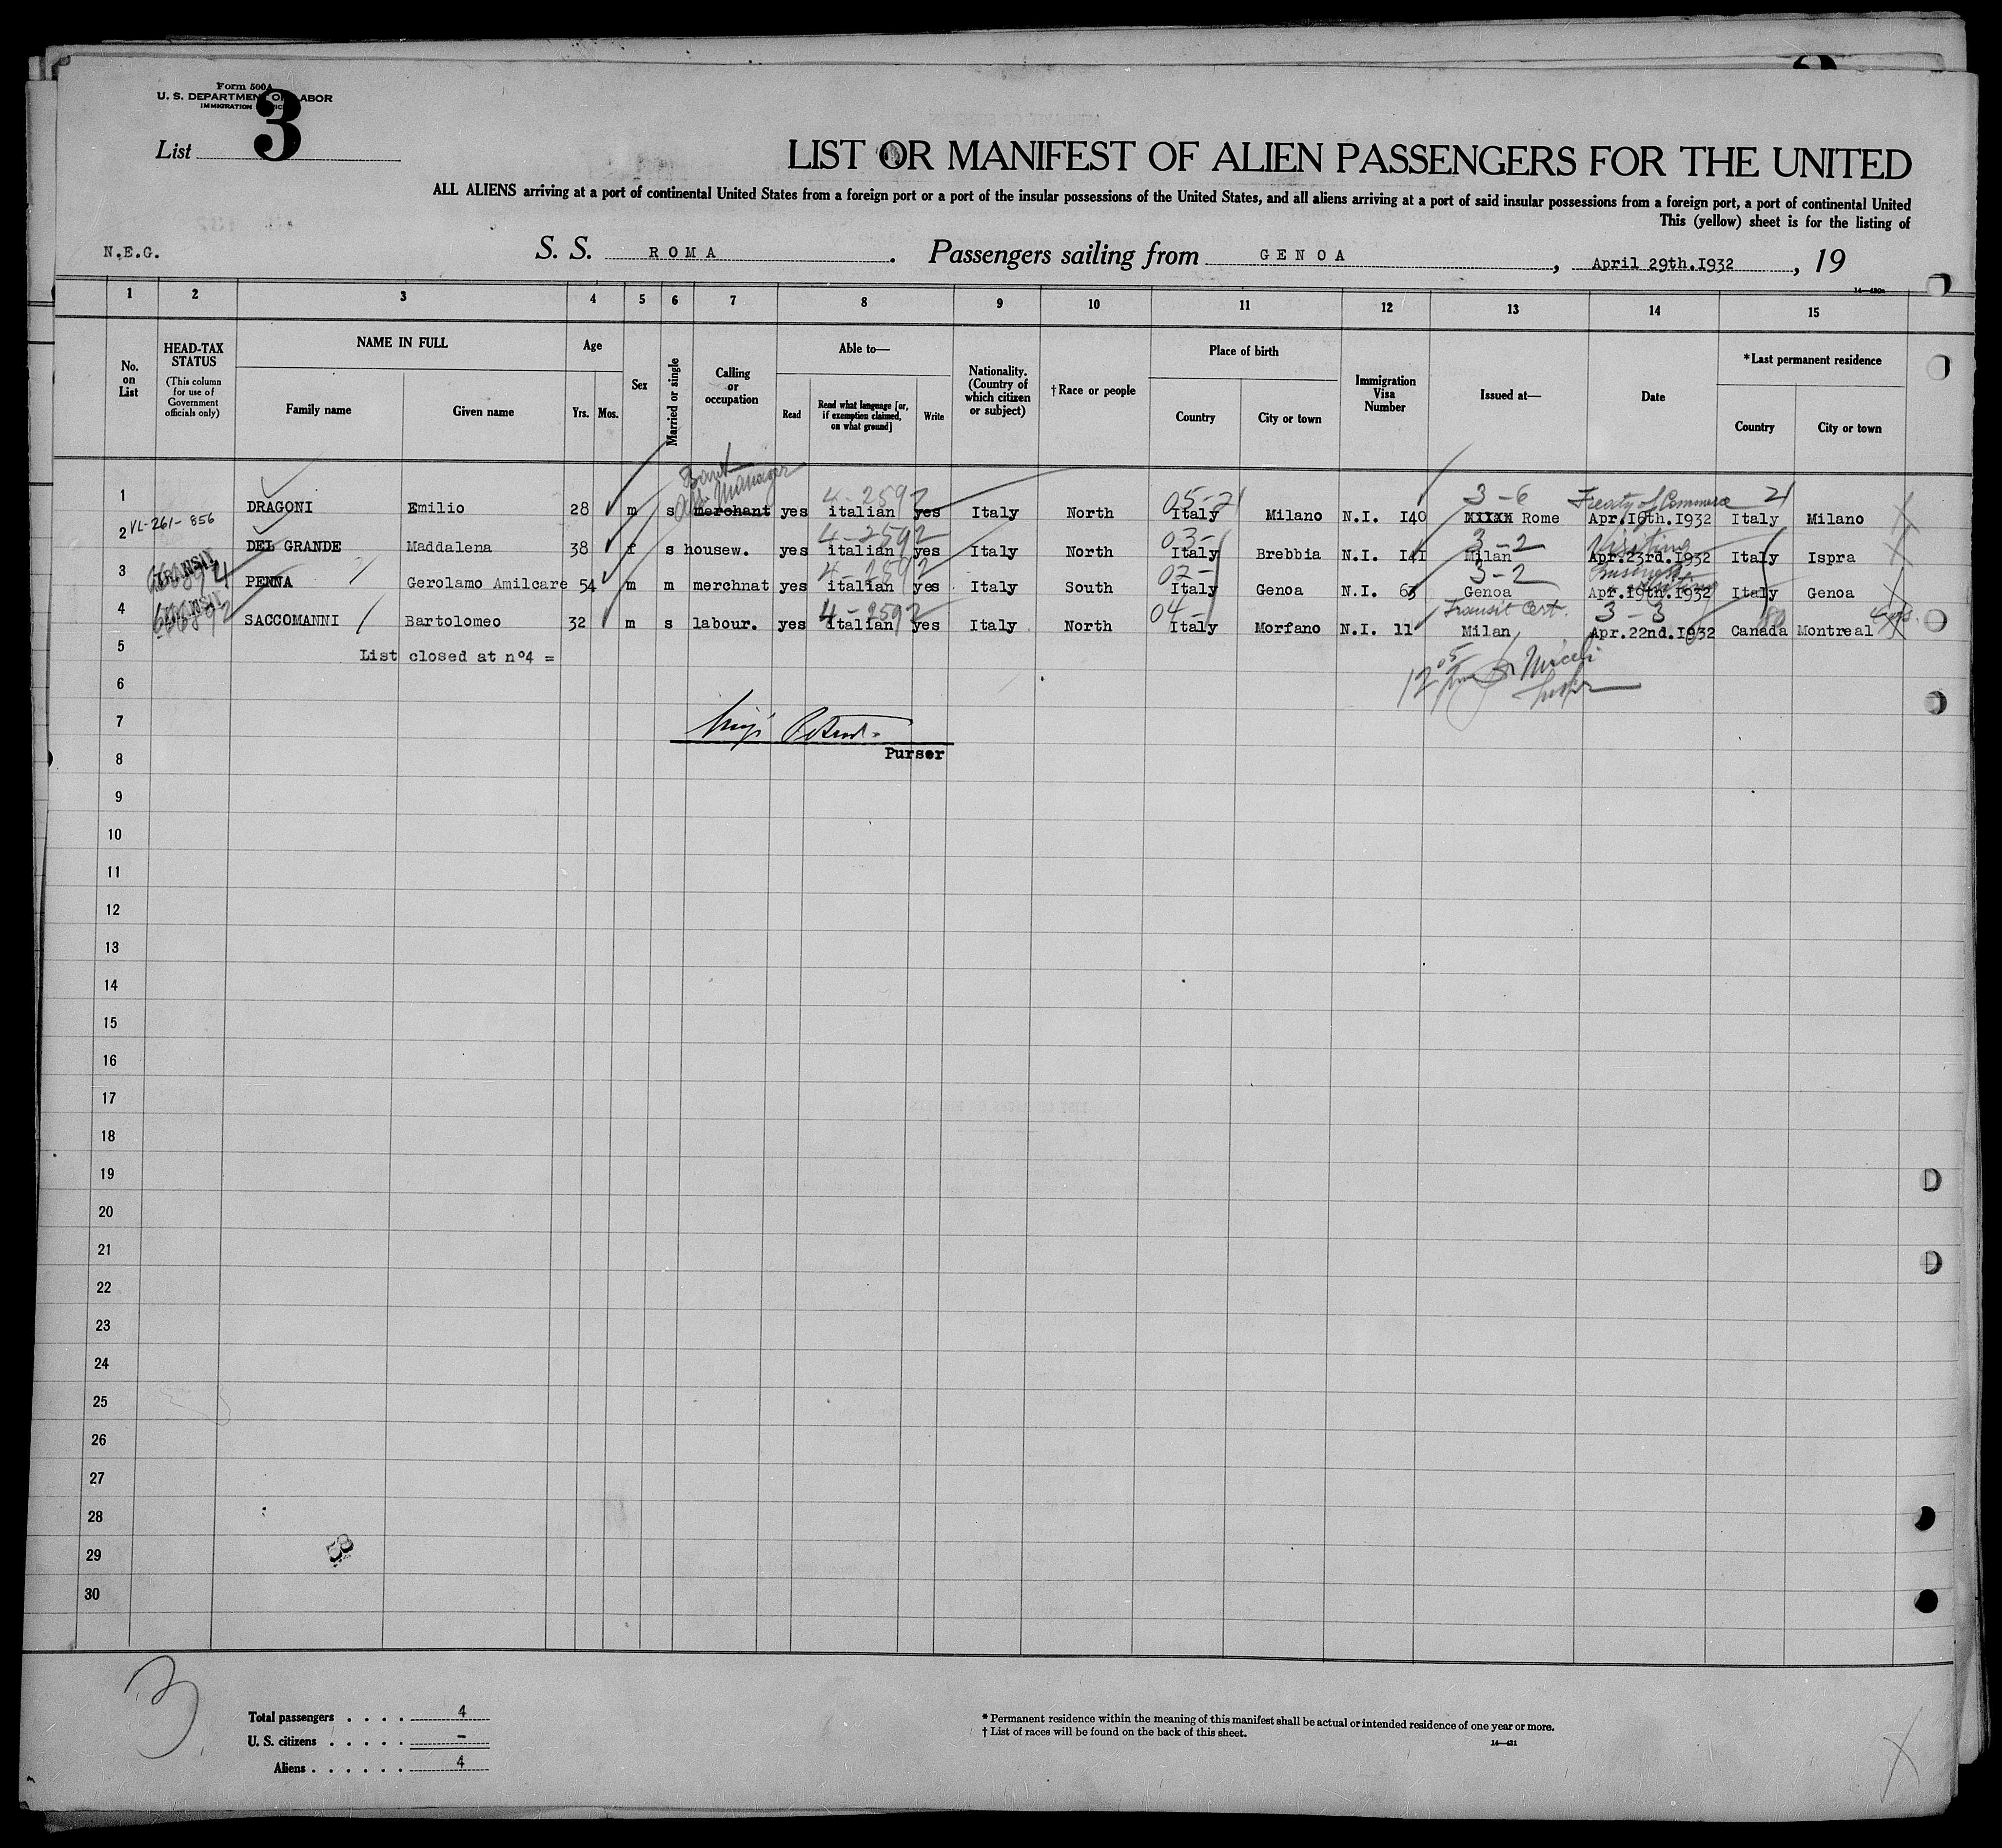 Form 500A
U. S. DEPARTMENT OF LABOR
IMMIGRATION
List 3
LIST OR MANIFEST OF ALIEN PASSENGERS FOR THE UNITED
ALL ALIENS arriving at a port of continental United States from a foreign port or a port of the insular possessions of the United States, and all aliens arriving at a port of said insular possessions from a foreign port, a port of continental United
This (yellow) sheet is for the listing of
N.E.G.
S. S. ROMA. Passengers sailing from GENOA, April 29th.I932, 19
1 2 3 4 5 6 7 8 9 10 11 12 13 14 15
No. on List
HEAD-TAX STATUS (This column for use of Government officials only)
NAME IN FULL
Family name Given name
Age
Yrs. Mos.
Sex
Married or single
Calling or occupation
Able to—
Read
Read what language [or, if exemption claimed, on what ground]
Write
Nationality. (Country of which citizen or subject)
†Race or people
Place of birth
Country City or town
Immigration Visa Number
Issued at—
Date
*Last permanent residence
Country City or town
Bank Manager 4-2592 05-21 3-6 Treaty of Commerce 21
1 DRAGONI Emilio 28 m s merchant yes italian yes Italy North Italy Milano N.I. I40 Rome Apr.16th.I932 Italy Milano
VL-261-856 4-2592 03- 3-2 Visiting
2 DEL GRANDE Maddalena 38 f s housew. yes italian yes Italy North Italy Brebbia N.I. I4I Milan Apr.23rd.I932 Italy Ispra
TRANSIT 4-2592 02- 3-2 Business
3 PENNA Gerolamo Amilcare 54 m m merchnat yes italian yes Italy South Italy Genoa N.I. 63 Genoa Apr.19th.I932 Italy Genoa
TRANSIT 4-2592 04- Transit Cert. 3-3
4 SACCOMANNI Bartolomeo 32 m s labour. yes italian yes Italy North Italy Morfano N.I. 11 Milan Apr.22nd.I932 Canada Montreal
5 List closed at n°4 =
6
7
Purser
8
9
10
11
12
13
14
15
16
17
18
19
20
21
22
23
24
25
26
27
28
29
30
3
Total passengers . . . . 4
U. S. citizens . . . . . –
Aliens . . . . . . 4
* Permanent residence within the meaning of this manifest shall be actual or intended residence of one year or more.
† List of races will be found on the back of this sheet.
14—421